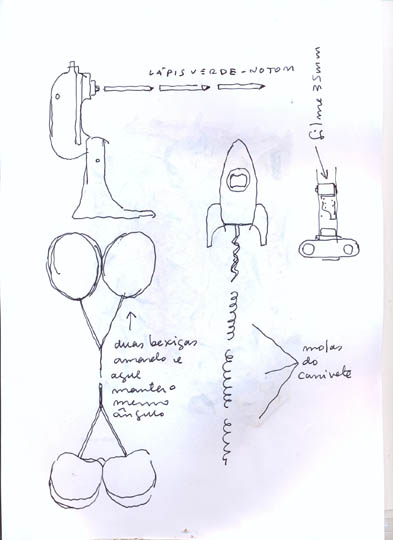 LÁPIS VERDE-NOTOM
filme 35mm
duas bexigas
amarelo e
azul
manter o
mesmo
ângulo
molas
do
canivete